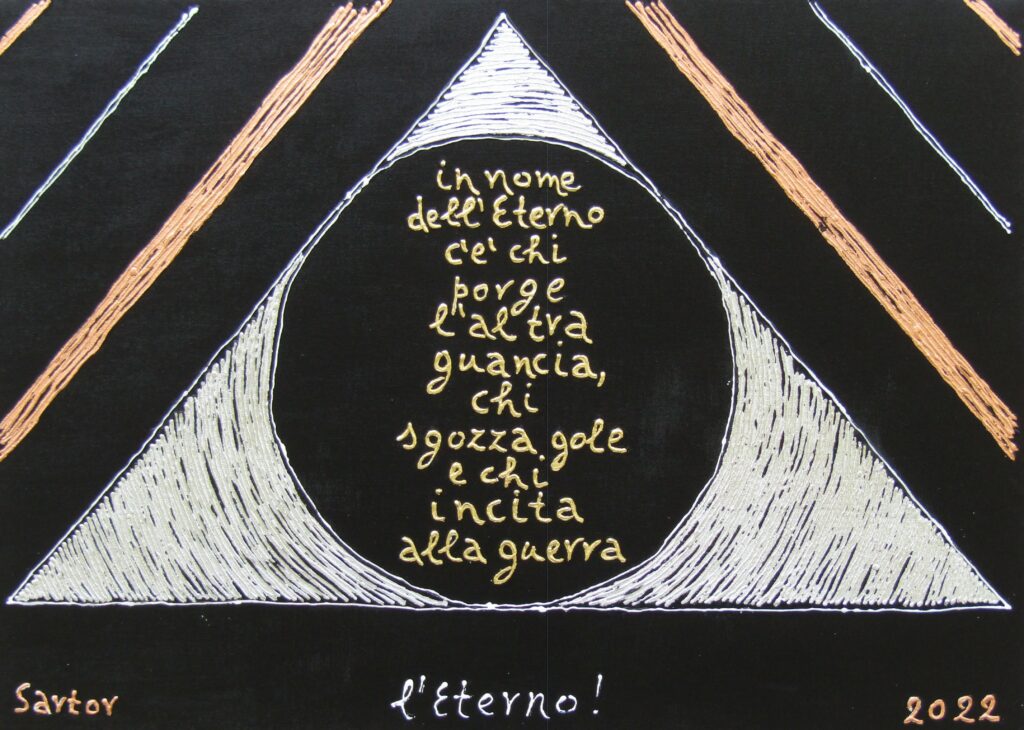 in nome
dell'Eterno
c'è chi
porge
l'altra
guancia,
chi
sgozza gole
e chi
incita
alla guerra
l'Eterno!
Sartor
2022